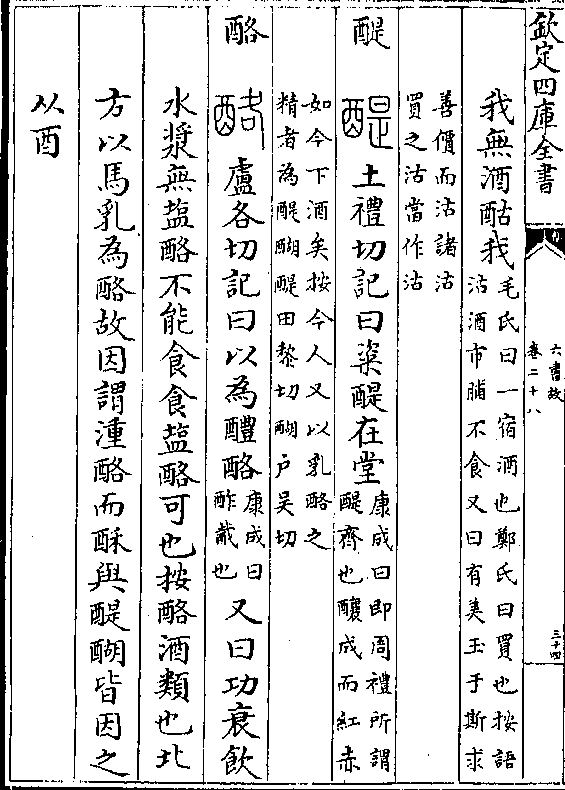 欽定四庫全書
六書故
卷二十八
三十四
我無酒酤我
毛氏曰一宿酒也鄭氏曰買也按語
沽酒市脯不食又曰有美玉于斯求
善價而沽諸沽
買之沽當作沽
醍
土禮切記曰粢醍在堂
康成曰即周禮所謂
醍齊也釀成而紅赤
如今下酒矣按今人又以乳酪之
精者為醍醐醍田黎切醐户吴切
酪
盧各切記曰以為醴酪
康成曰
酢酨也
又曰功衰飲
水漿無塩酪不能食食塩酪可也按酪酒類也北
方以馬乳為酪故因謂湩酪而酥與醍醐皆因之
从酉